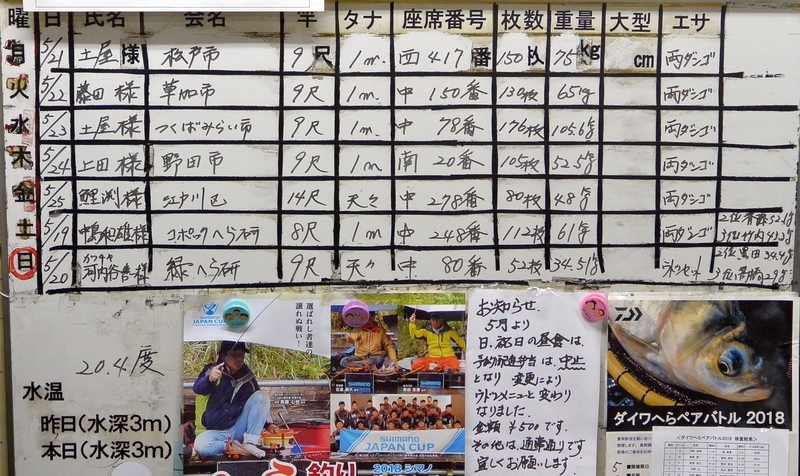 曜 日 氏名 会名 竿 タナ 座席番号 枚数 重量 大型 エサ
月 5/21 土屋様 松戸市 9尺 1m. 西417番 150枚 75kg cm 両ダンゴ
火 5/22 藤田様 草加市 9尺 1m. 中150番 130枚 65kg 両ダンゴ
水 5/23 土屋様 つくばみらい市 9尺 1m 中78番 176枚 105.6kg 両ダンゴ
木 5/24 上田様 野田市 9尺 1m 南20番 105枚 52.5kg 両ダンゴ
金 5/25 鯉渕様 江戸川区 14尺 天々 中278番 80枚 48kg 両ダンゴ
土 5/19 雄様 コポックへら研 8尺 1m 中248番 112枚 61kg 両ダンゴ
日 5/20 様 緑へら研 9尺 天々 中80番 52枚 34.51kg
20.4.度
水温
昨日(水深3m)
本日(水深3m)
SHIMANO
JAPAN CUP
選ばれし者達の
譲れぬ戦い!
SHIMANO
JAPAN CUP
釣り
2018 シマノ
お知らせ.
5月より
日、祝日の昼食は、
予約配達弁当は、中止
となり 変更により
ウドンメニューと変わり
なりました.
金額 ¥500です.
その他は通常通りです
宜しくお願いします.
ダイワへらペアバトル 2018
<ダイワへらペアバトル2018 検量結果>